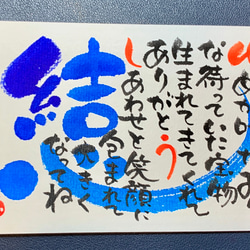 結
な待っていた宝物
生まれてきてくれて
ありがとう
しあわせと笑顔に
包まれて
大きく
なってね